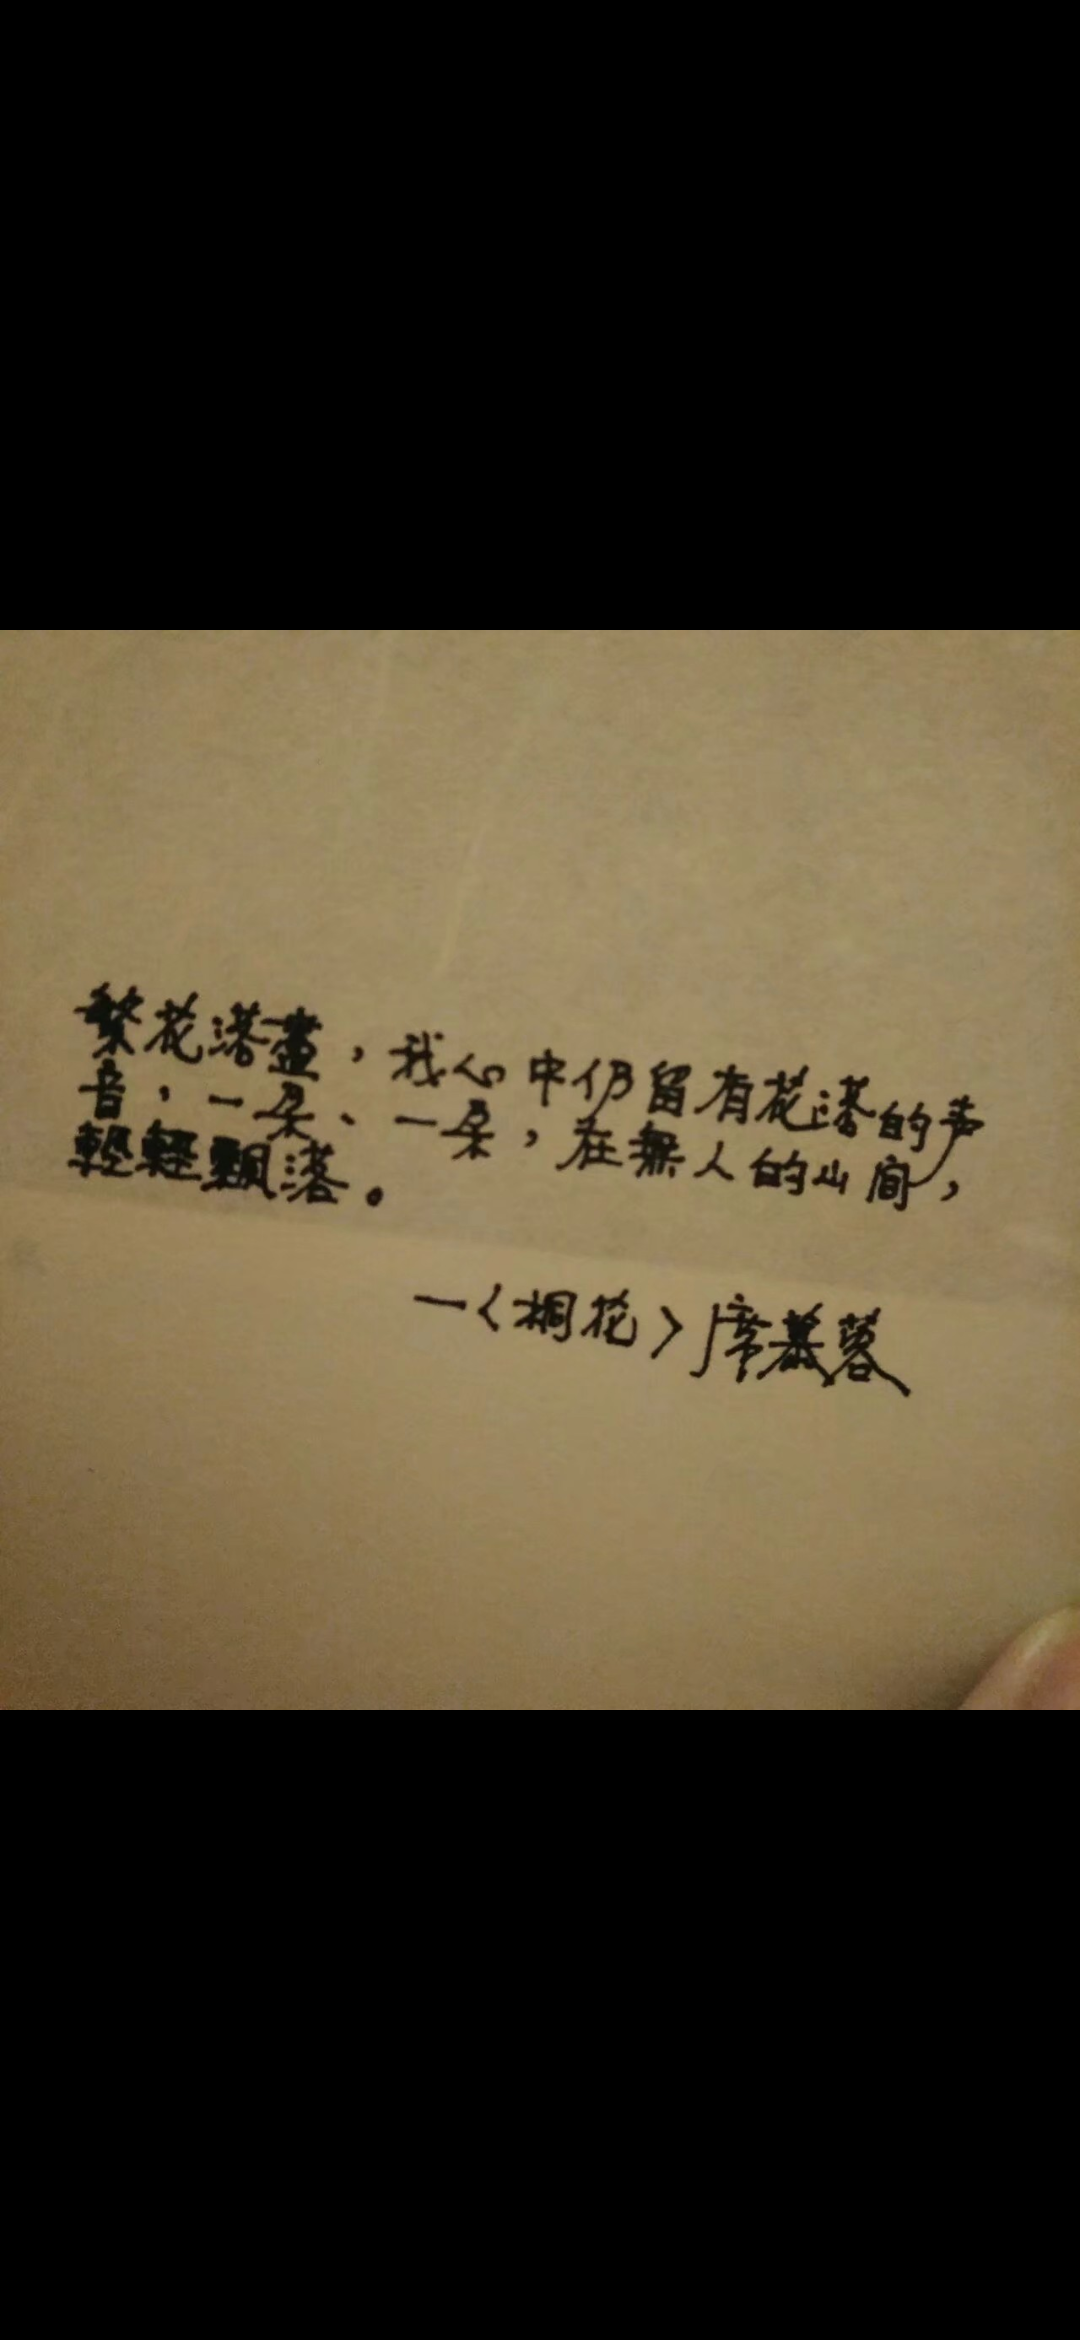 繁花落盡，我心中仍留有花落的声
音，一朵、一朵，在無人的山間，
輕輕飄落。
—〈桐花〉席慕蓉